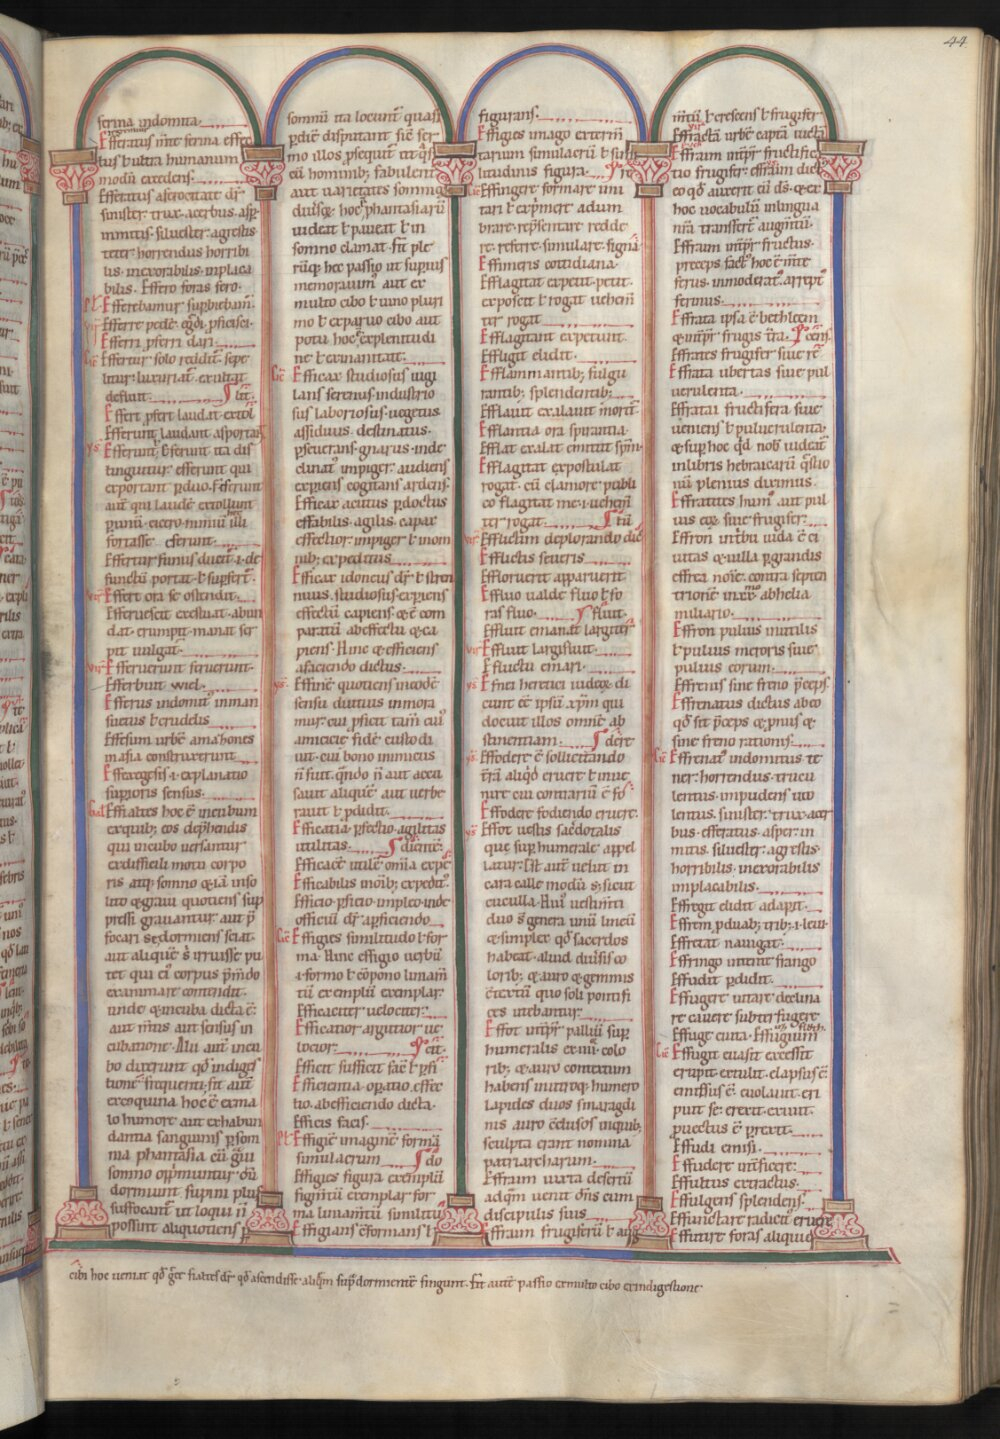 44
ferina indomita.
Efferatus m̅te ferina effec
tus ƀ ultra humanum
modū excedens.
Efferitas a ferocitate dr̅
sinister. trux. acerbus. asꝑ
inmitis. siluester. agrestis
teter. horrendus. horribi
lis. inexorabilis. inplaca
bilis. Effero foras fero.
Efferebamur suꝑbiebam̅.
Efferri ꝓferri dari.
Effertur solo reddit̅. sepe
litur. luxuriat̅. exultat
defluit.
Effert ꝓfert laudat extol
Efferunt laudant asportaɼ
Efferunt ƀ ferunt ita dis
tinguitur. efferunt qui
exportant ꝑduo.f. eferunt
aut̅ qui laudē extollunt
fortasse eferunt.
Effert ora se ostendit.
Efferuescit exestuat. abun
dat. erumpit. manat. ser
pit. uulgat̅.
Efferuerunt feruerunt.
Efferbuit wiel.
Efferus indomit᷒ inman
suetus ƀ crudelis
Effesum urbē amazones
in asia construxerunt.
Effexegesis .i. explanatio
suꝑioris sensus.
Effialtes hoc ē incubum
ex quib; eos dep̄hendis
qui incubo uersantur
ex difficili motu corpo
ris atq; somno & iā inso
lito & graui quotiens sup
pressi grauantur. aut p̄
focari se dormiens sciat.
aut aliquē s̅ irruisse pu
tet qui ei corpus p̄mdo
exanimare contendit.
unde & incuba dicta ē.
aut nimis aut sensus in
cubatione. Alii aut̅ incu
bo dixerunt qd̅ indiges
tionē frequenti. fit aut̅
ex coquina hoc ē ex ma
lo humore aut exhabun
dantia sanguinis ꝑ som
ma phantasia cū ḡui
somno op̄muntur. dū
dormiunt supini plus
suffocant̅ ut loqui n̅
possint aliquotiens
somnū ita locunt̅ quasi
ꝑdiē disputant sic̅ ser
mo illos ꝓsequit̅
cū hominib; fabulent̅
aut uarietates somnia
diuisq; hoc phantasiarū
uideat ƀ paueat ƀ in
somno clamat. fit ple
rūq; hec passio ut supius
memorauim̅ aut ex
multo cibo ƀ uino pluri
mo ƀ ex paruo cibo aut
potu. hoc explenitudi
ne ƀ exinanitate.
Efficax studiosus uigi
lans serenus industrio
sus laboriosus. uegetus
assiduus. destinatus.
ꝑseuerans. gnarus. inde
clinat᷒ impiger. audiens
expiens cogitans ardens.
Efficax acutus ꝑdoctus
effabilis. agilis. capax
effectior. impiger ƀ in om
nib; expeditus.
Efficax idoneus dr̅ ƀ stren
nuus. studiosus. expiens
effectū capiens. & ē com
paratiū ab effectu & ca
piens. Hinc & efficiens
a faciendo dictus.
Effinē quotiens in eodē
sensu diutius inmora
mur. cui ꝓficit tam̅ cui᷒
amicicie fidē custodi
uit. cui bono inimicus
n̅ fuit. qn̅do n̅ aut accu
sauit aliquē. aut uerbe
rauit ƀ ꝑdidit.
Efficatia. ꝑfectio. agilitas
utilitas.
Efficacē utilē om̅a
Efficabilis in oib; expedit᷒.
Efficio. ꝑficio. impleo. inde
officiū dr̅. ꝑficiendo
Effigies similitudo ƀ for
ma. Hinc effigio uerbū
.i. formo ƀ cōpono
tū exemplū exemplar
Efficaciter uelociter.
Efficatior argutior ue
locior.
Efficit sufficit facē ƀ ꝓfi
Efficientia. oꝑatio. effec
tio. ab efficiendo dicta.
Efficis facis.
Effigiē imaginē formā
simulacrum
Effigies figura exemplū
figmtū exemplar for
ma similitus
Effigians effor̄mans ƀ
figurans.
Effigies imago extern̄
tarium simulacrū ƀ simi
litudinis figura.
Effingere formare imi
tari ƀ exp̄mere adum
brare. rep̄sentare redde
re. referre. simulare. signa
Effimeris cottidiana.
Efflagitat expetit. petit.
exposcit ƀ rogat uehem̄
ter rogat
Efflagitant expetunt.
Effligit elidit.
Efflammantib; fulgu
rantib; splendentib;
Efflauit exalauit morit̅.
Efflantia ora spirantia.
Efflat exalat emittit spm̅.
Efflagitat expostulat
rogat. cū clamore publi
co flagitat me .i. uehem̄
ter rogat.
Effluctim deplorando
Effluctis seueris
Effloruerit apparuerit
Effluo ualde fluo ƀ fo
ras fluo. fluit.
Effluit emanat largiter
Effluit largifluit.
Effluctu e mari.
Effnei heretici iudeoꝝ di
cunt ēē ipsū xp̅m qui
docuit illos omnē ab
stinentiam.
Effodere ē sollicitando
t̅rā aliqd̅ eruere ƀ inue
nire cui contrariū ē fo
Effodere fodiendo eruere.
Effot uestis sacdotalis
que suphumerale appel
latur. Est aut̅ uelut in
caracalle modū s; sicut
cuculla. Hui᷒ uestim̄ti
duo s̅ genera unū lineū
& simplex qd̅ sacerdos
habeat. aliud diuisis co
lorib; & auro & gemmis
ctextū quo soli pontifi
ces utebantur.
Effot int̅pr̅ palliū sup
humeralis ex .iiii. colo
rib; & auro contextum
habens in utroq; humero
lapides duos smaragdi
nis auro cclusos inquib;
sculpta erant nomina
patriarcharum.
Effraim iuxta desertū
ad qm̅ uenit dn̅s cum
discipulis suis.
Effraim frugiferū ƀ auc
m̅tū ƀ crescens ƀ frugifer
Effracta urbē capta uicta
Effraim int̅pr̅ fructifica
tio frugifer effraim dict᷒
eo qd̅ auxerit eū ds̅. & ex
hoc uocabulū in lingua
nr̅a transfert̅ augm̅tū.
Effraim int̅pr̅ fructus.
preceps. fact᷒ hoc ē m̅te
ferus. inmoderat᷒. arrept᷒
ferinus.
Effrata ipsa ē bethleem
& int̅pr̅ frugis t̅ra.
Effrates frugifer siue
Effrata ubertas siue pul
uerulenta.
Effratai fructifera siue
ueniens ƀ puluerulenta.
& sup hoc qd̅ nob̅ uideat̅
in libris hebraicarū q̅stio
nū plenius diximus.
Effratites hum᷒ aut pul
uis eoꝝ siue frugifer.
Effron in t̅bu iuda ē ci
uitas & uilla p̄grandis
effrea noīe. contra septen
trionē in .xx. ab helia
miliario.
Effron puluis inutilis
ƀ puluis meroris siue
puluis eorum.
Effrenis sine freno p̄ceps
Effrenatus dictus ab eo
qd̅ sit p̄ceps & p̄nus &
sine freno rationis.
Effrenat᷒ indomitus te
ner. horrendus. trucu
lentus. inpudens uio
lentus. sinister. trux. acer
bus. efferatus. asper. in
mitis. siluester. agrestis.
horribilis. inexorabilis
implacabilis.
Effregit elidit adapit.
Effrem ꝑ duab; trib; .i. leui
Effretat nauigat.
Effringo intente frango
Effudit ꝑdidit.
Effugere uitare declina
re cauere subterfugere
Effuge euita. Effugium
Effugit euasit excessit
erupit. extulit. elapsus ē
emissus ē. euolauit. eri
puit se. exerit. exiuit.
ꝓuectus ē p̄rexit.
Effudi emisi.
Effudere interficere.
Effultus extractus.
Effulgens splendens.
Effunctare radicit̅ eruere
Effutire foras aliquid
cibi hoc ueniat qd̅ g̅ce fialtes dr̅ qd̅ ascendisse aliqm̅ sup dormientē fingunt. Fit aut̅ passio ex multo cibo ex indigestione